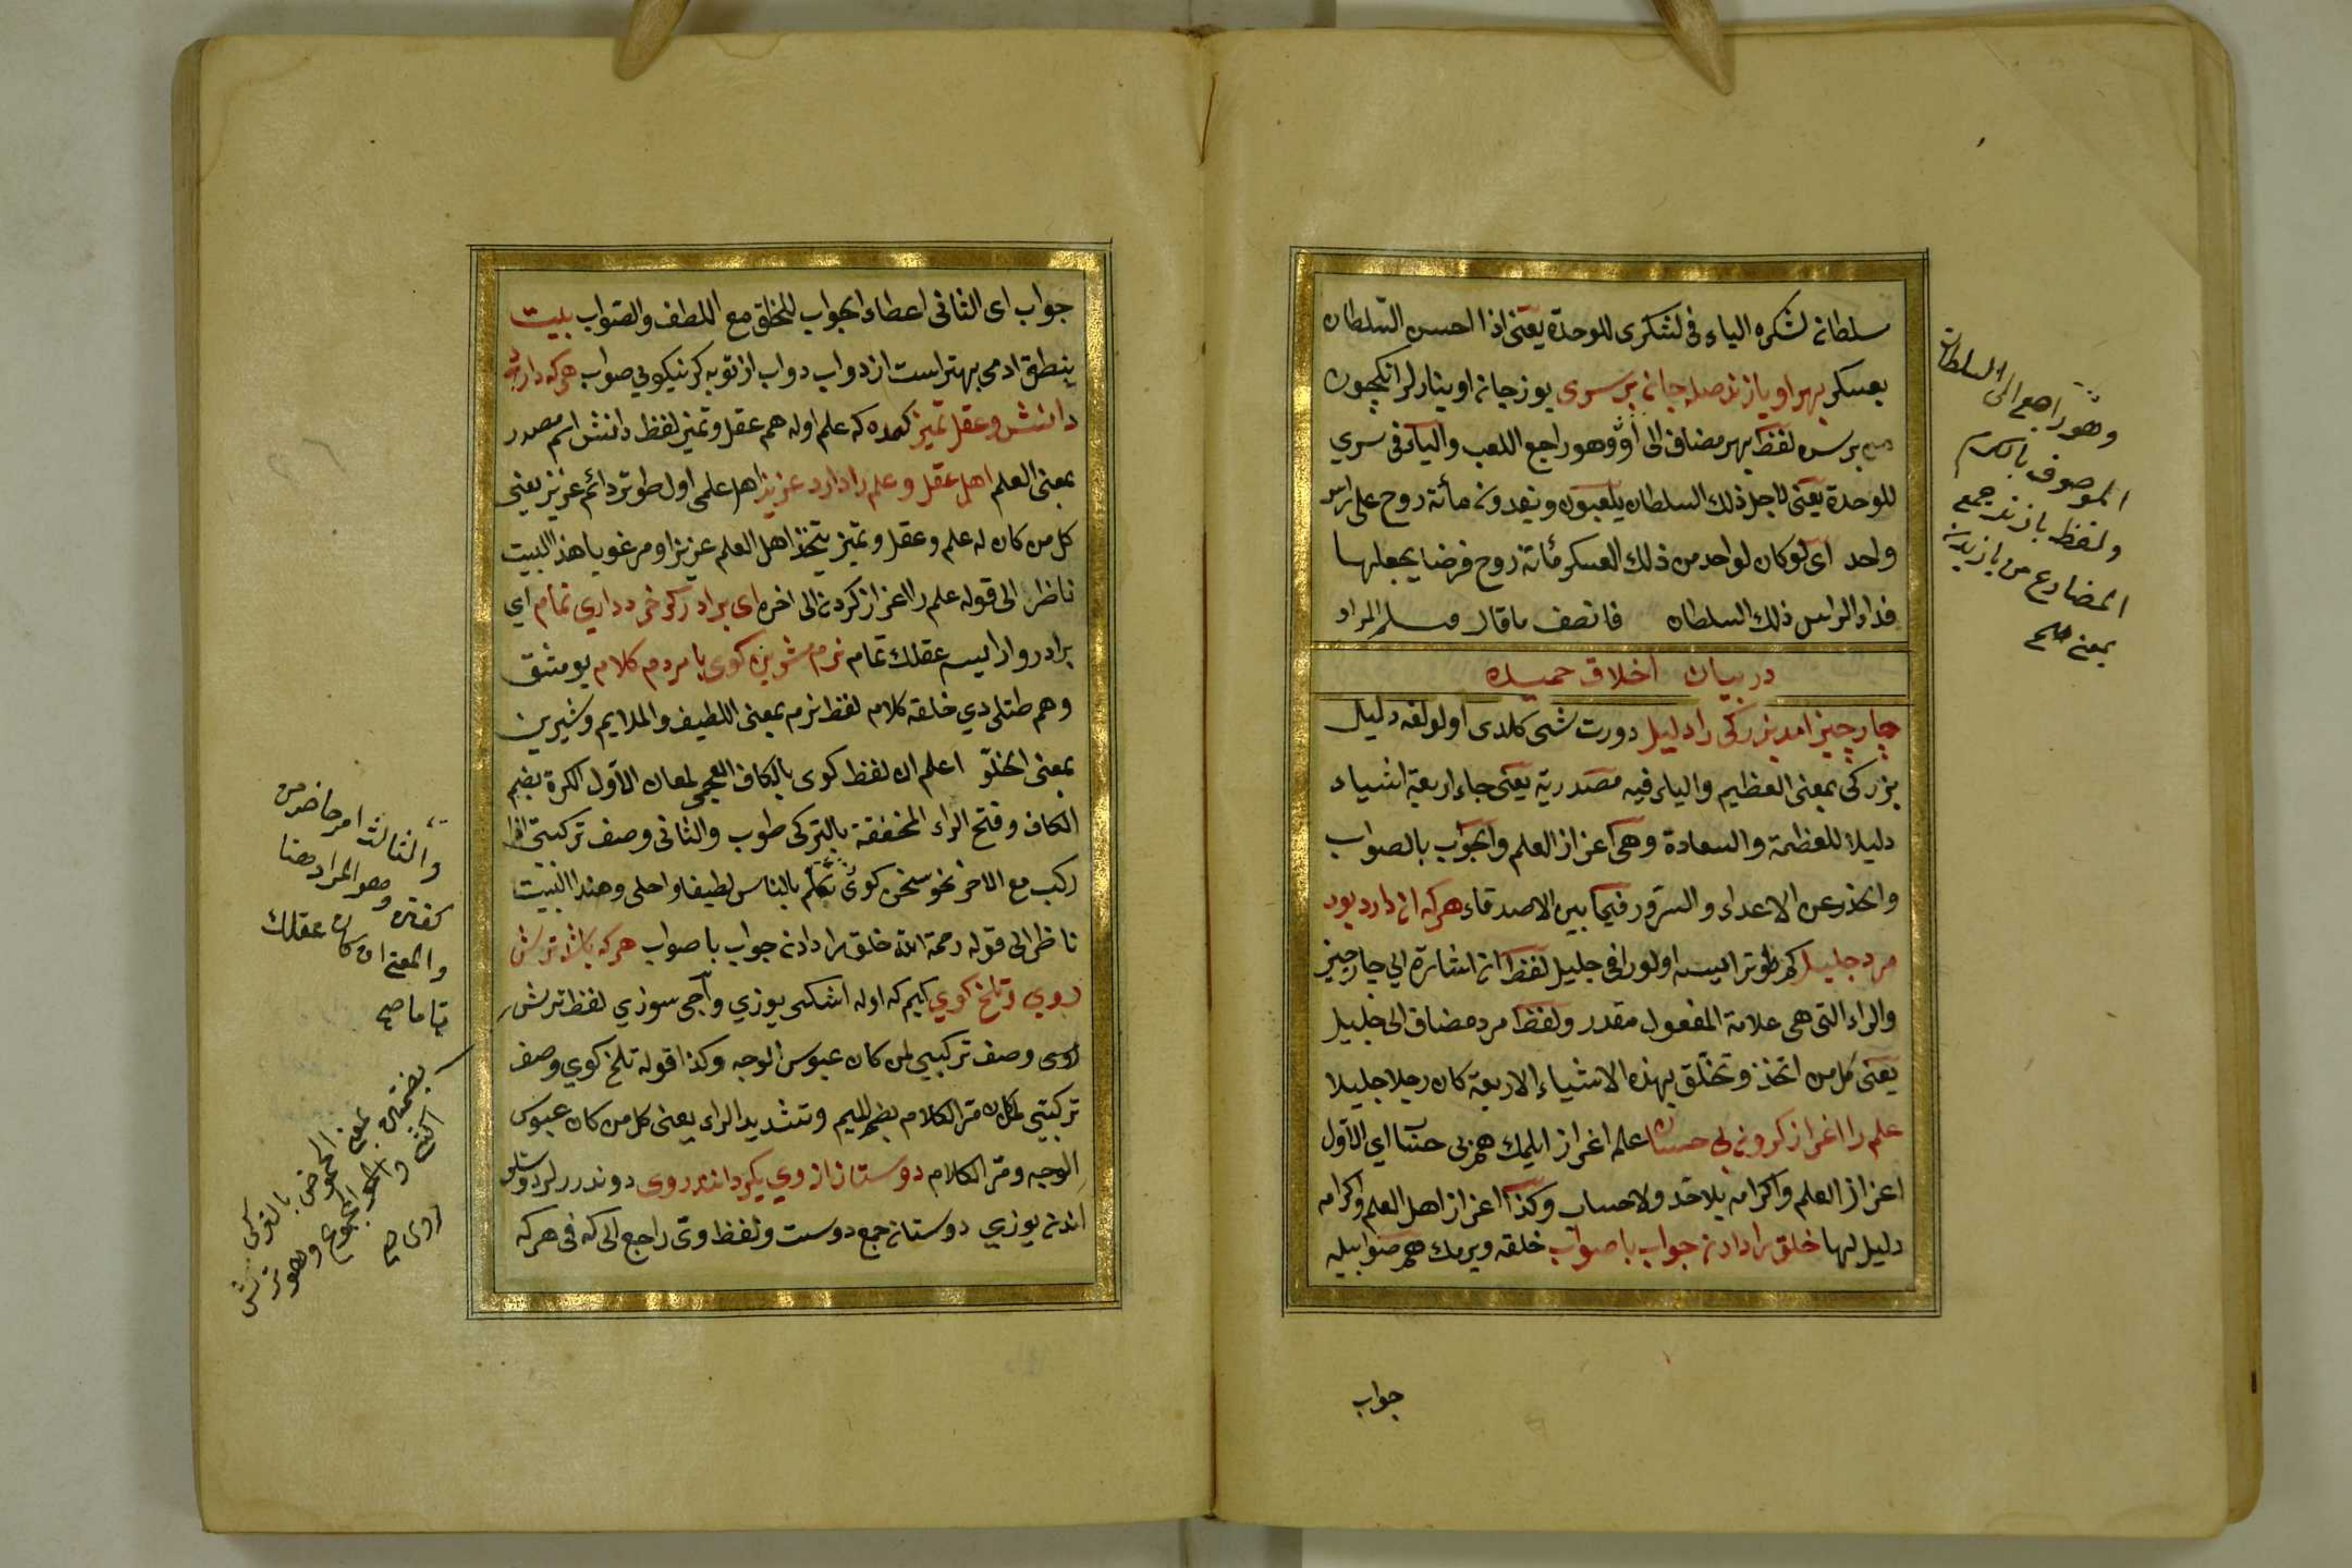 سلطانه لشكره الياء فى لشكرى للوحدة يعنى اذا احسن السلطان
بعسكر بهر او بازند صد جان بر سرى يوز جانه اوينارلر انكچون
بر سره لفظ بهر مضاف الى او وهو راجع اللعب والياء فى سري
للوحدة يعنى لاجل ذلك السلطان يلعبون ويفدون مأتة روح على راس
واحد اى لو كان لواحد من ذلك العسكر مأتة روح فرضا يجعلها
فداء لراس ذلك السلطان فانصف ماقال وسلم المراد
در بيان اخلاق حميده
چار چيز امد بزركى را دليل دورت شى كلدى اولولغه دليل
بزركى بمعنى العظيم والياء فيه مصدرية يعنى جاء اربعة اشياء
دليلا للعظمة والسعادة وهى اعزاز العلم والجواب بالصواب
والحذر عن الاعداء والسرور فيما بين الاصدقاء هركه ان دارد بود
مرد جليل كم طوتر ايسه اولور اقى جليل لفظ ان اشارة الي چار چيز
والراء التى هى علامة المفعول مقدر ولفظ مرد مضاف الى جليل
يعنى كل من اتخذ وتخلق بهذه الاشياء الاربعة كان رجلا جليلا
علم را اعزاز كردن بى حساب علمه اعزاز ايلمك هم بى حساب اي الاول
اعزاز العلم واكرامه بلا حد ولا حساب وكذا اعزاز اهل العلم واكرامه
دليل لها خلق را دادن جواب با صواب خلقه ويرمك هم صوابيله
جواب
وهو راجع الى السلطان
الموصوف بالكرم
ولفظ بازند جمع
المضارع من بازيدن
بمعنى
جواب اى الثانى اعطاء الجواب للخلق مع اللطف والصواب بيت
بنطق ادمى بهتر است از دواب دواب از تو به كر نكويى صواب هركه دارد
دانش وعقل تميز كمده كه علم اوله هم عقل وتميز لفظ دانش اسم مصدر
بمعنى العلم اهل عقل وعلم را دارد عزيز اهل علمى اول طوتر دائم عزيز يعنى
كل من كان له علم وعقل وتميز يتخذ اهل العلم عزيزا ومرغوبا هذا البيت
ناظر الى قوله علم را اعزاز كردن الى اخره اى برادر كر خرد داري تمام اي
برادر وار ايسه عقلك تمام نرم شيرين كوى با مردم كلام يومشق
وهم طتلى دي خلقه كلام لفظ نرم بمعنى اللطيف والملايم وشيرين
بمعنى الحلو اعلم ان لفظ كوى بالكاف العجمى لمعان الاول الكرة بضم
الكاف وفتح الراء المخففة بالتركى طوب والثانى وصف تركيبى اذا
ركب مع الاخر نحو سخن كوى تكلم بالناس لطيفا واحلى وهذا البيت
ناظر الى قوله رحمة الله خلق را دادن جواب با صواب هركه باشد ترش
روي وتلخ كوي كيم كه اوله اشكى يوزي وآجى سوزي لفظ ترش
روى وصف تركيبى لمن كان عبوس الوجه وكذا قوله تلخ كوي وصف
تركيبى لمن كان مر الكلام بضم الميم وتشديد الراء يعنى كل من كان عبوس
الوجه ومر الكلام دوستان از وي بكرداند روى دوندررلر دوستلر
اندن يوزي دوستان جمع دوست ولفظ وى راجع الى كه فى هركه
والثالث امر حاضر من
كفتن وهو المراد هنا
والمعنى ان كان عقلك
تاما صح
بضمتين بمعنى الحموض بالتركى
اكشى
روى صح